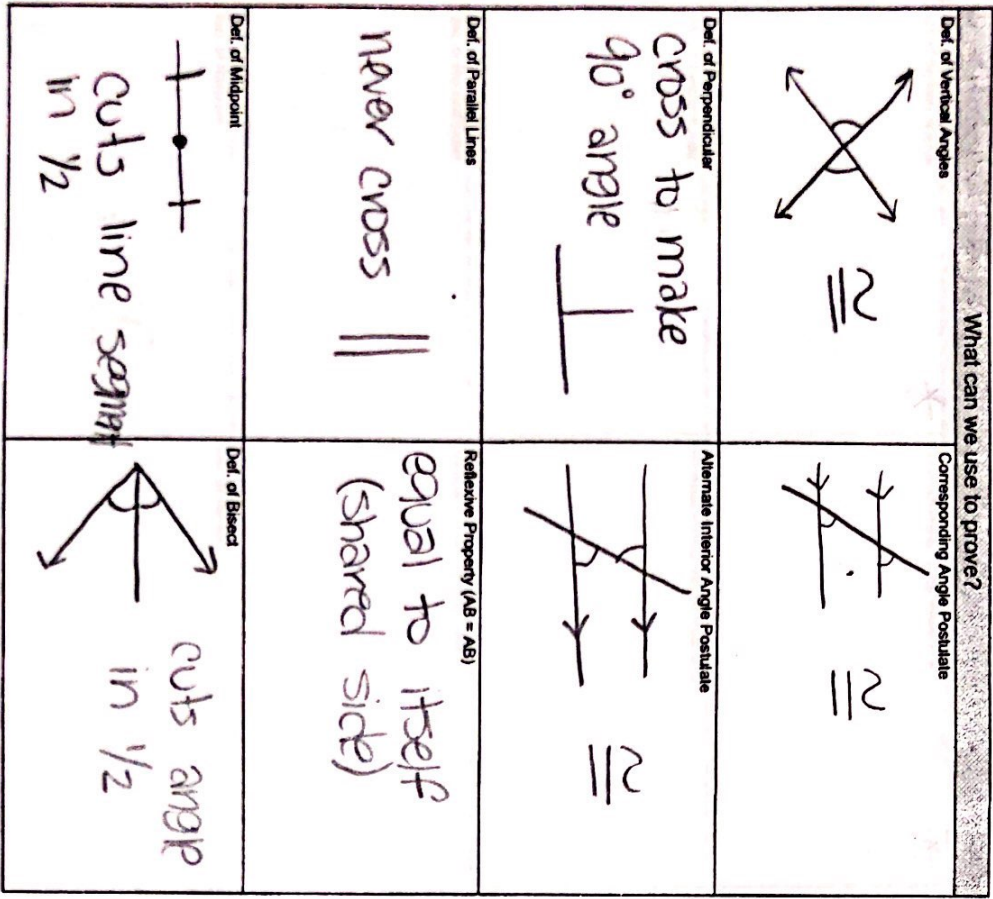 What can we use to prove?
Def. of Vertical Angles
≅
Corresponding Angle Postulate
≅
Def. of Perpendicular
cross to make
90° angle
Alternate Interior Angle Postulate
≅
Def. of Parallel Lines
never cross ||
Reflexive Property (AB = AB)
equal to itself
(shared side)
Def. of Midpoint
cuts line segment
in 1/2
Def. of Bisect
cuts angle
in 1/2